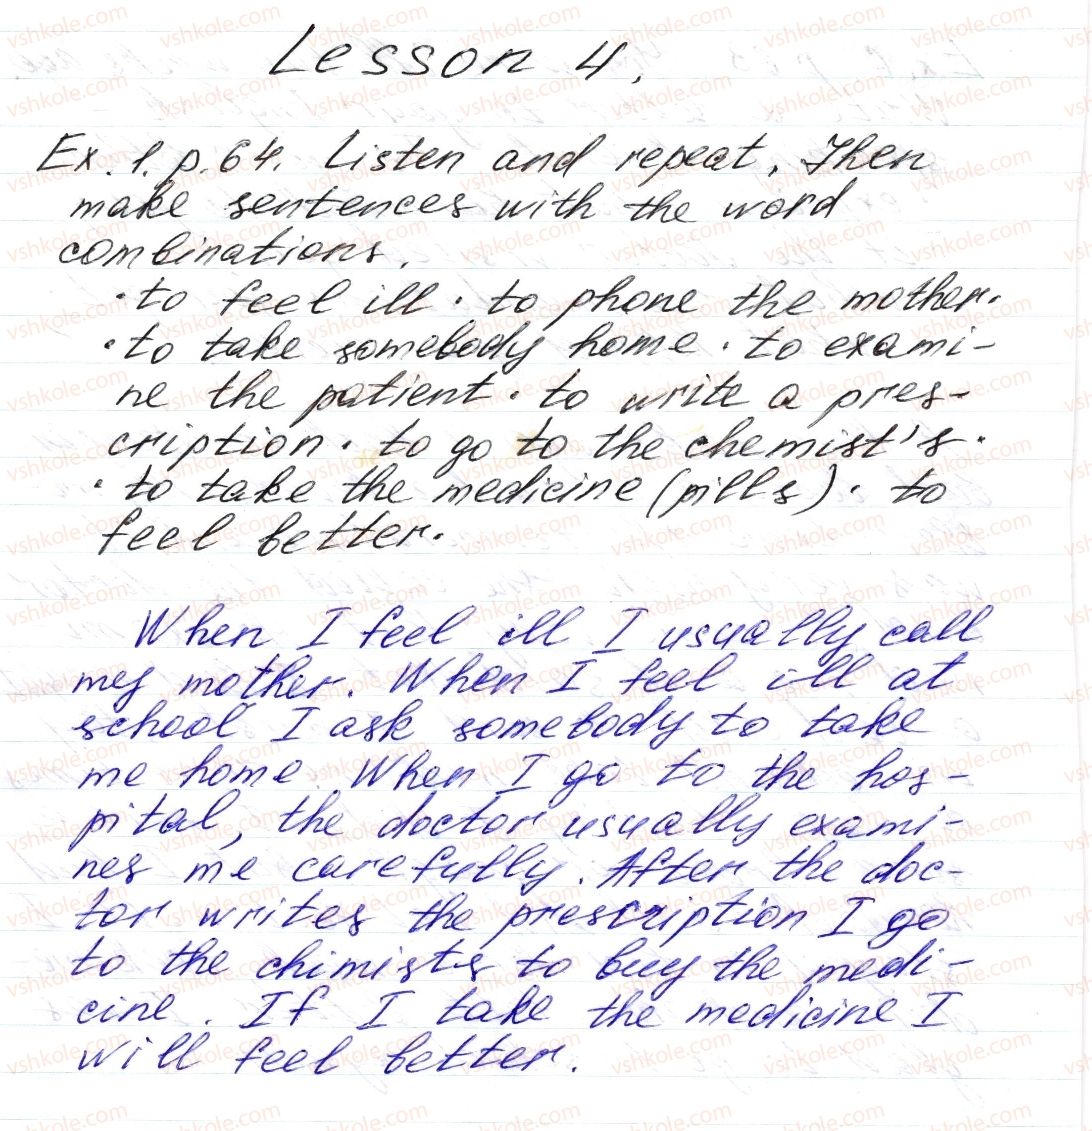 Lesson 4.
Ex. 1. p. 64. Listen and repeat. Then
make sentences with the word
combinations.
· to feel ill · to phone the mother ·
· to take somebody home · to exami-
ne the patient · to write a pres-
cription · to go to the chemist's ·
· to take the medicine (pills) · to
feel better ·
When I feel ill I usually call
my mother. When I feel ill at
school I ask somebody to take
me home. When I go to the hos-
pital, the doctor usually exami-
nes me carefully. After the doc-
tor writes the prescription I go
to the chimists to buy the medi-
cine. If I take the medicine I
will feel better.